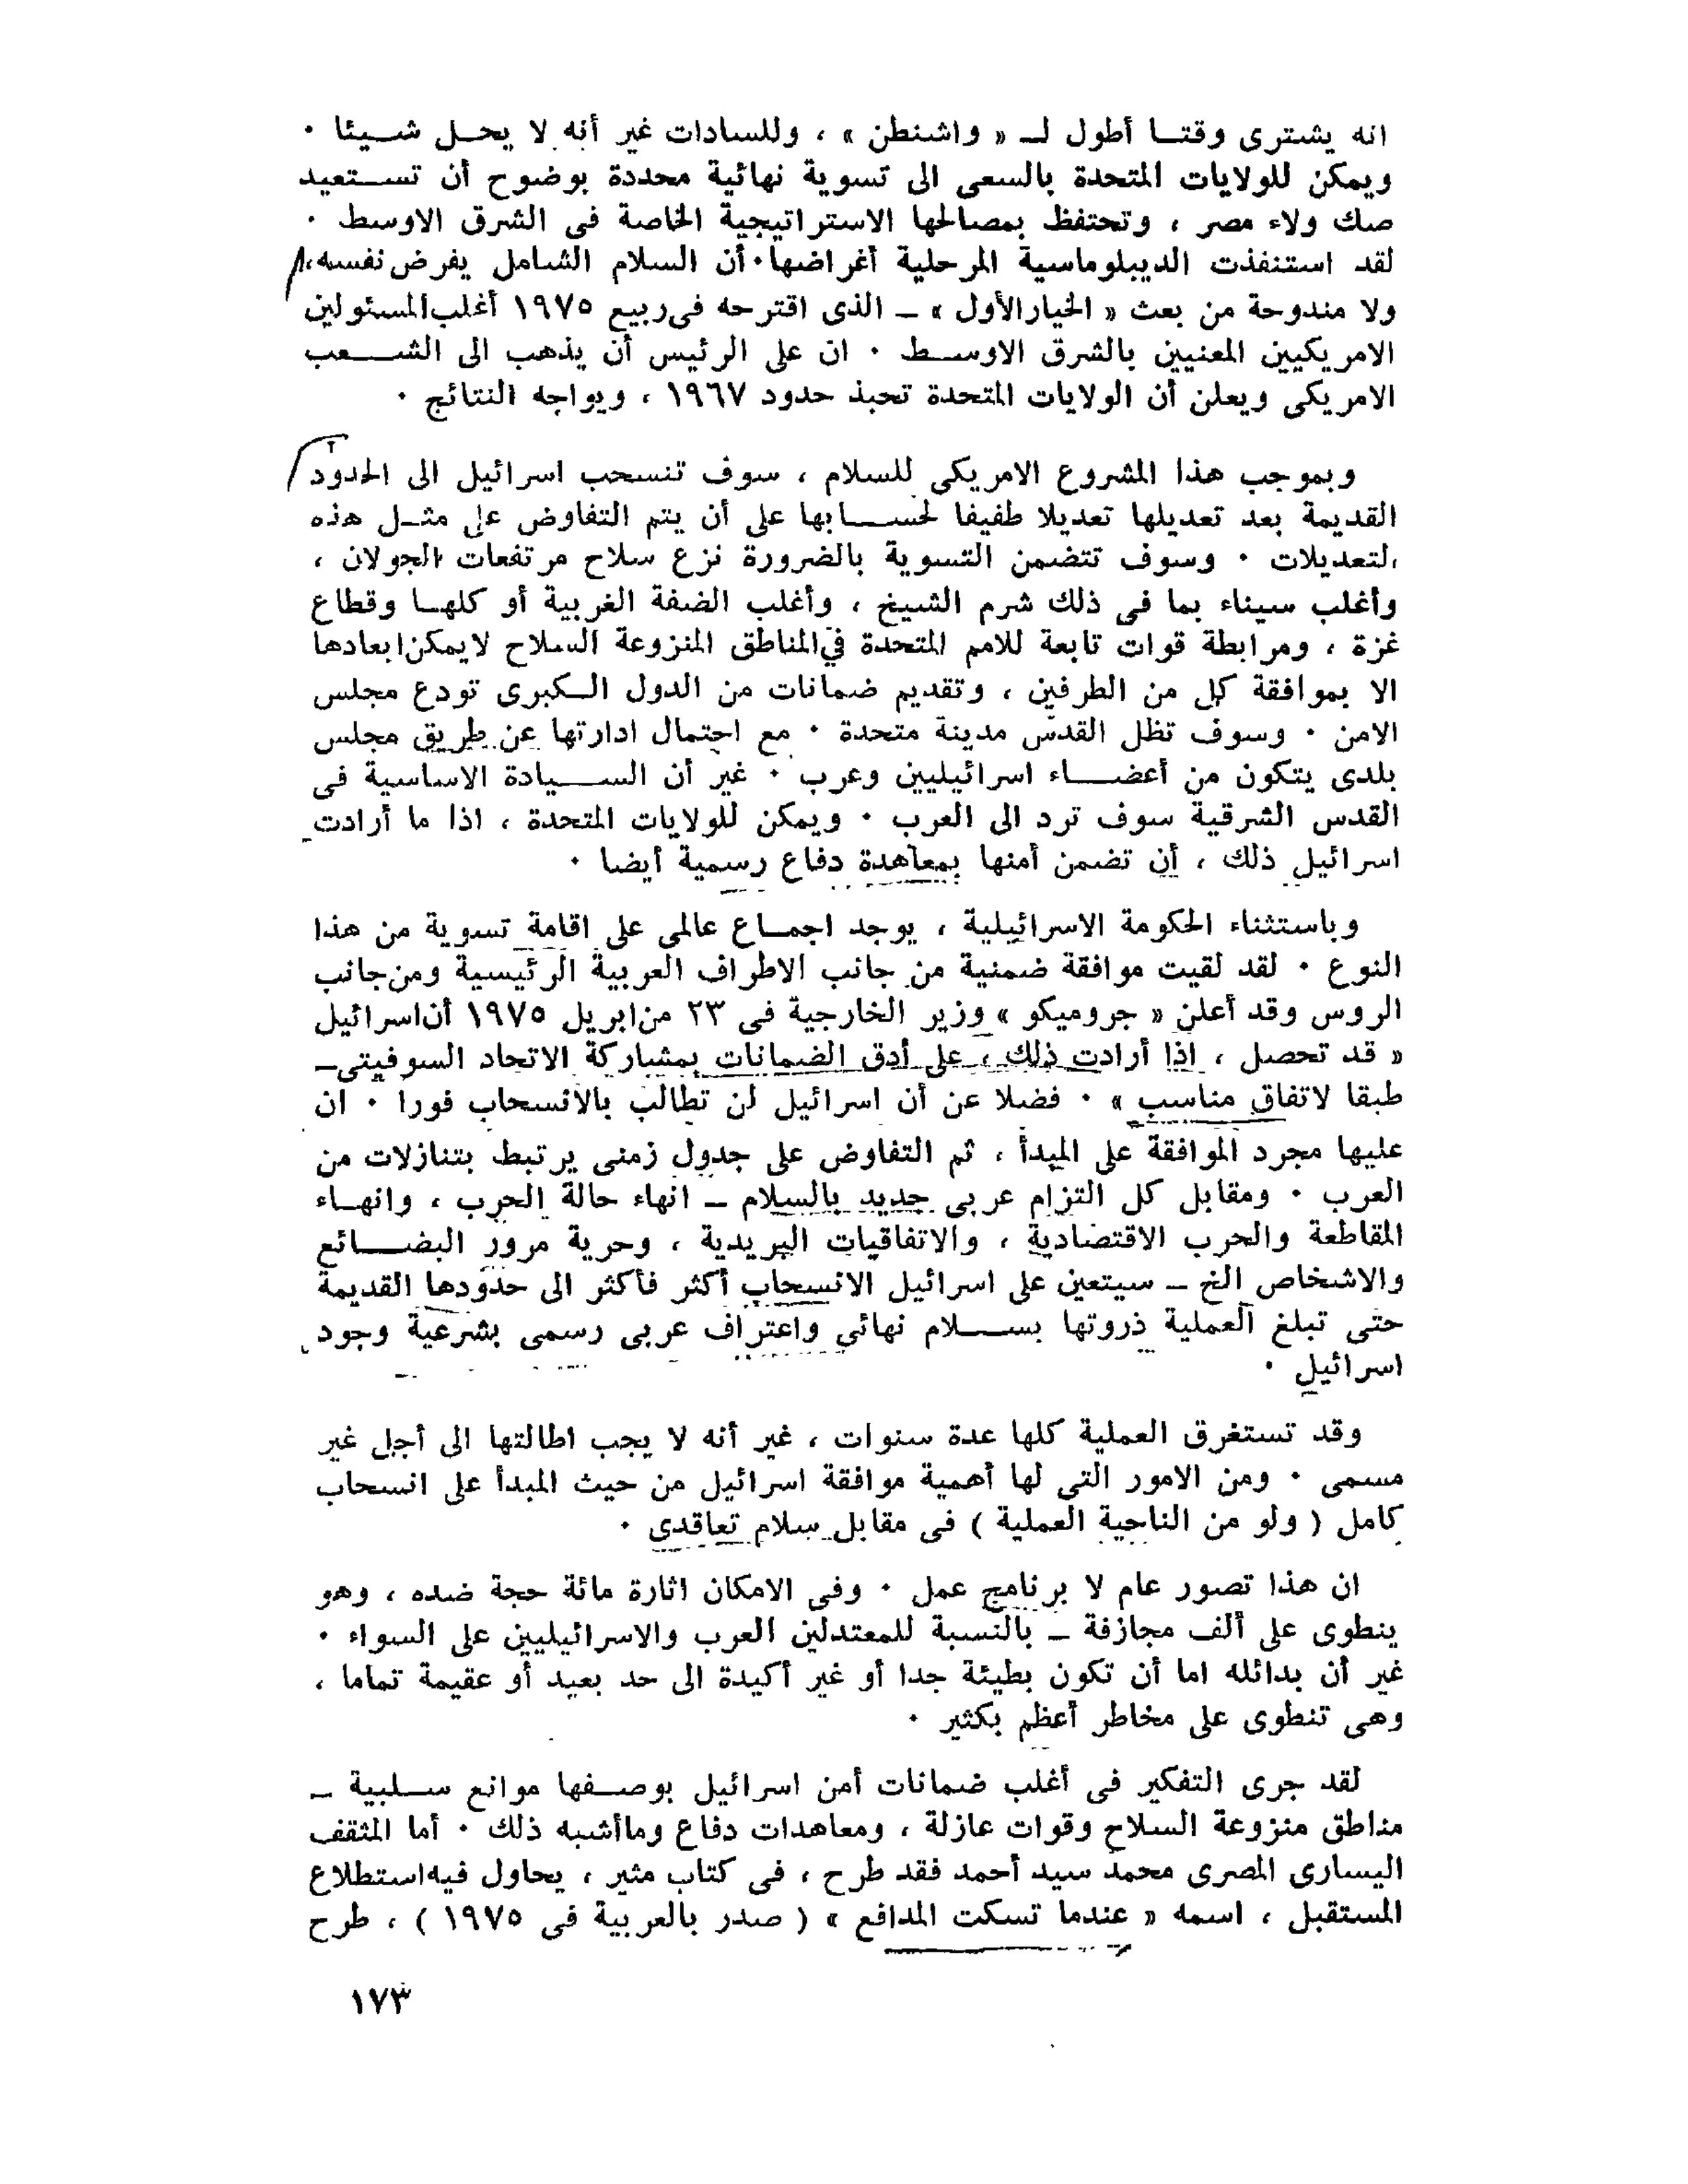 انه يشترى وقتــا أطول لــ « واشنطن » ، وللسادات غير أنه لا يحــل شــيئا ٠
ويمكن للولايات المتحدة بالسعى الى تسوية نهائية محددة بوضوح أن تســتعيد
صك ولاء مصر ، وتحتفظ بمصالحها الاستراتيجية الخاصة فى الشرق الاوسط ٠
لقد استنفذت الديبلوماسية المرحلية أغراضها٠ أن السلام الشامل يفرض نفسه،
ولا مندوحة من بعث « الخيارالأول » ــ الذى اقترحه فى ربيع ١٩٧٥ أغلب المسئولين
الامريكيين المعنيين بالشرق الاوســط ٠ ان على الرئيس أن يذهب الى الشــعب
الامريكى ويعلن أن الولايات المتحدة تحبذ حدود ١٩٦٧ ، ويواجه النتائج ٠
وبموجب هذا المشروع الامريكى للسلام ، سوف تنسحب اسرائيل الى الحدود
القديمة بعد تعديلها تعديلا طفيفا لحســابها على أن يتم التفاوض على مثــل هذه
التعديلات ٠ وسوف تتضمن التسوية بالضرورة نزع سلاح مرتفعات الجولان ،
وأغلب سيناء بما فى ذلك شرم الشيخ ، وأغلب الضفة الغربية أو كلهــا وقطاع
غزة ، ومرابطة قوات تابعة للامم المتحدة فى المناطق المنزوعة السلاح لايمكن ابعادها
الا بموافقة كل من الطرفين ، وتقديم ضمانات من الدول الــكبرى تودع مجلس
الامن ٠ وسوف تظل القدس مدينة متحدة ٠ مع احتمال ادارتها عن طريق مجلس
بلدى يتكون من أعضــاء اسرائيليين وعرب ٠ غير أن الســيادة الاساسية فى
القدس الشرقية سوف ترد الى العرب ٠ ويمكن للولايات المتحدة ، اذا ما أرادت
اسرائيل ذلك ، أن تضمن أمنها بمعاهدة دفاع رسمية أيضا ٠
وباستثناء الحكومة الاسرائيلية ، يوجد اجمــاع عالمى على اقامة تسوية من هذا
النوع ٠ لقد لقيت موافقة ضمنية من جانب الاطراف العربية الرئيسية ومن جانب
الروس وقد أعلن « جروميكو » وزير الخارجية فى ٢٣ من ابريل ١٩٧٥ أن اسرائيل
« قد تحصل ، اذا أرادت ذلك ، على أدق الضمانات بمشاركة الاتحاد السوفيتى ــ
طبقا لاتفاق مناسب » ٠ فضلا عن أن اسرائيل لن تطالب بالانسحاب فورا ٠ ان
عليها مجرد الموافقة على المبدأ ، ثم التفاوض على جدول زمنى يرتبط بتنازلات من
العرب ٠ ومقابل كل التزام عربى جديد بالسلام ــ انهاء حالة الحرب ، وانهــاء
المقاطعة والحرب الاقتصادية ، والاتفاقيات البريدية ، وحرية مرور البضــائع
والاشخاص الخ ــ سيتعين على اسرائيل الانسحاب أكثر فأكثر الى حدودها القديمة
حتى تبلغ العملية ذروتها بســلام نهائى واعتراف عربى رسمى بشرعية وجود
اسرائيل ٠
وقد تستغرق العملية كلها عدة سنوات ، غير أنه لا يجب اطالتها الى أجل غير
مسمى ٠ ومن الامور التى لها أهمية موافقة اسرائيل من حيث المبدأ على انسحاب
كامل ( ولو من الناحية العملية ) فى مقابل سلام تعاقدى ٠
ان هذا تصور عام لا برنامج عمل ٠ وفى الامكان اثارة مائة حجة ضده ، وهو
ينطوى على ألف مجازفة ــ بالنسبة للمعتدلين العرب والاسرائيليين على السواء ٠
غير أن بدائله اما أن تكون بطيئة جدا أو غير أكيدة الى حد بعيد أو عقيمة تماما ،
وهى تنطوى على مخاطر أعظم بكثير ٠
لقد جرى التفكير فى أغلب ضمانات أمن اسرائيل بوصــفها موانع ســلبية ــ
مناطق منزوعة السلاح وقوات عازلة ، ومعاهدات دفاع وماأشبه ذلك ٠ أما المثقف
اليسارى المصرى محمد سيد أحمد فقد طرح ، فى كتاب مثير ، يحاول فيه استطلاع
المستقبل ، اسمه « عندما تسكت المدافع » ( صدر بالعربية فى ١٩٧٥ ) ، طرح
١٧٣